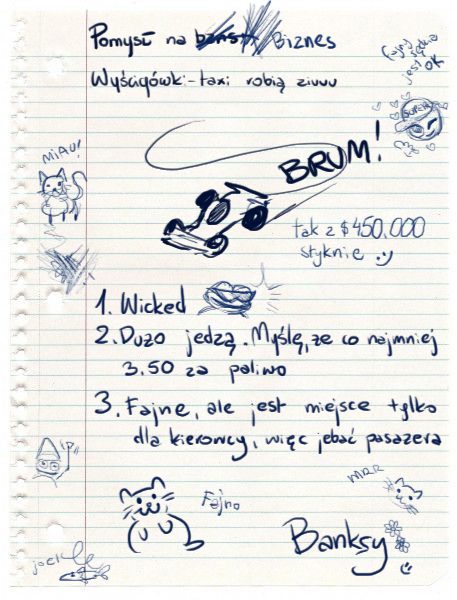 Pomysł na Biznes
Wyścigówki-taxi robią ziuuu
jest
OK
SUPER
MIAU!
BRUM!
tak z $450.000
styknie
1. Wicked
2. Dużo jedzą. Myślę, że co najmniej
3.50 za paliwo
3. Fajne, ale jest miejsce tylko
dla kierowcy, więc jebać pasażera
:P
MRR
Fajno
Banksy